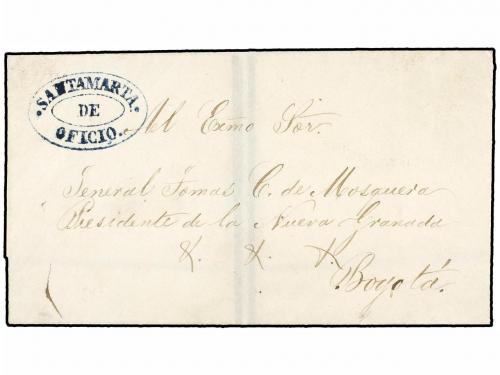 SANTAMARTA
DE
OFICIO
Al Exmo Sor.
Jeneral Tomas C. de Mosquera
Presidente de la Nueva Granada
&. &. &.
Bogotá.